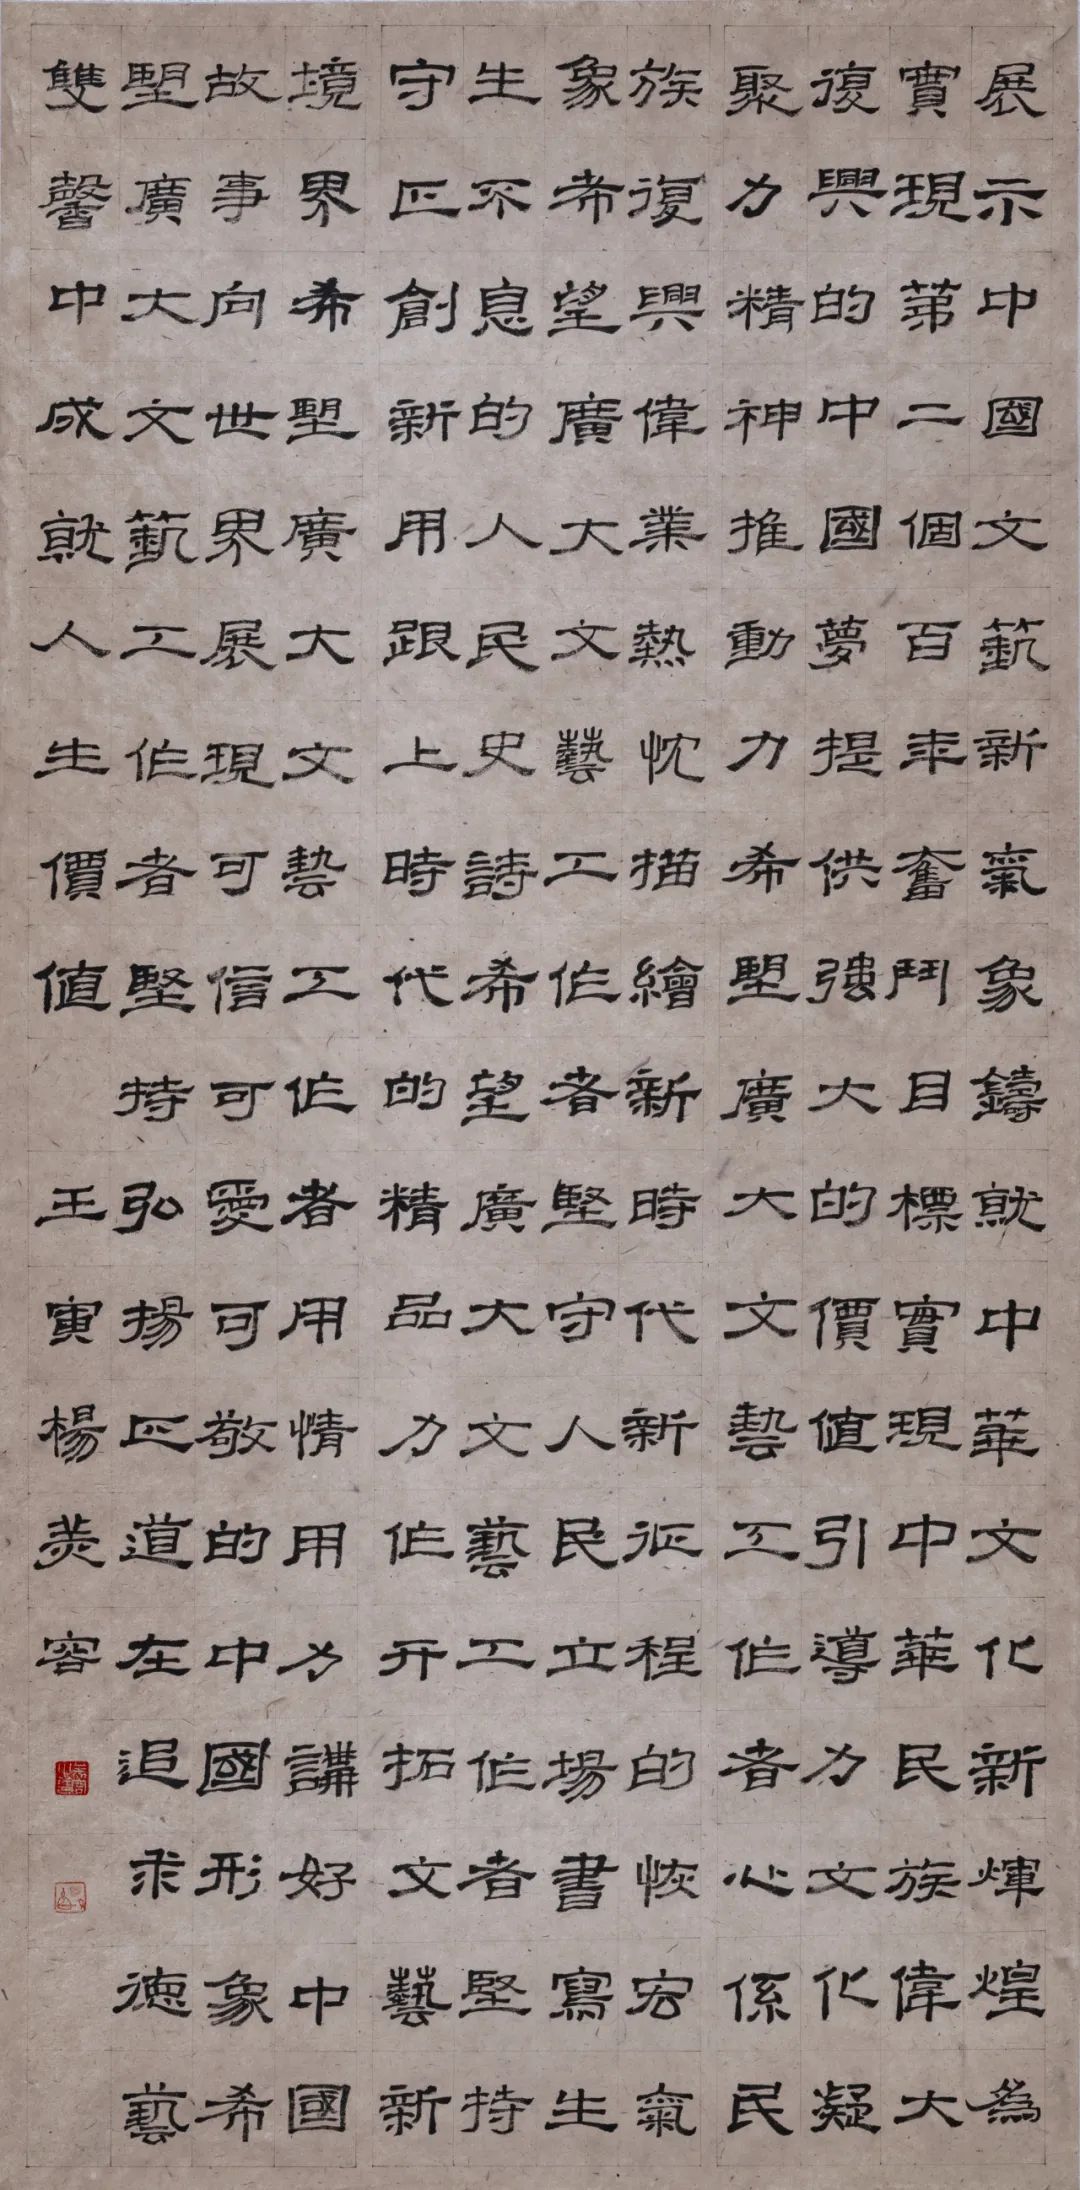 展示中國文藝新氣象鑄就中華文化新煇煌為
實現第二個百年奮鬥目標實現中華民族偉大
復興的中國夢提供强大的價值引導力文化凝
聚力精神推動力希望廣大文藝工作者心係民
族復興偉業熱忱描繪新時代新征程的恢宏氣
象希望廣大文藝工作者堅守人民立場書寫生
生不息的人民史詩希望廣大文藝工作者堅持
守正創新用跟上時代的精品力作开拓文藝新
境界希望廣大文藝工作者用情用力講好中國
故事向世界展現可信可愛可敬的中國形象希
望廣大文藝工作者堅持弘揚正道在追求德藝
雙馨中成就人生價值 壬寅楊美容